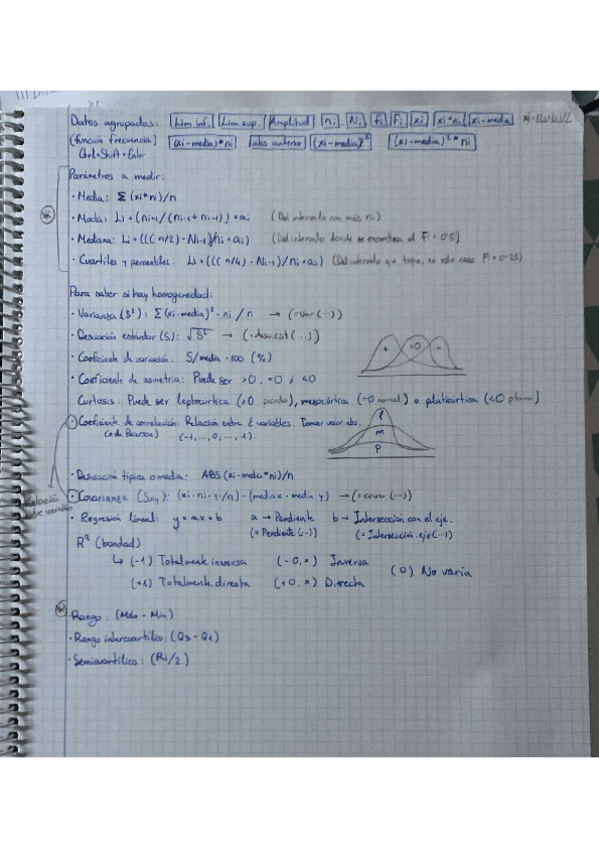 Datos agrupados: Lim inf. Lim sup. Amplitud ni Ni fi Fi xi xi*ni xi-media xi=(Ls+Li)/2
(función frecuencia) (xi-media)*ni abs anterior (xi-media)² (xi-media)²*ni
Ctrl+Shift+Enter
Parámetros a medir:
· Media: Σ(xi*ni)/n
· Moda: Li+(ni+1/(ni+1+ni-1))*ai (Del intervalo con más ni)
· Mediana: Li+(((n/2)-Ni-1)/ni*ai) (Del intervalo donde se encuentra el Fi=0'5)
· Cuartiles y percentiles: Li+(((n/4)-Ni-1)/ni*ai) (Del intervalo que toque, en este caso Fi=0'25)
Para saber si hay homogeneidad:
· Varianza (S²): Σ(xi-media)²·ni/n → (=var(...))
· Desviación estándar (S): √S² → (=desvest(...))
· Coeficiente de variación: S/media·100 (%)
· Coeficiente de asimetría: Puede ser >0, =0 ó <0
+ =0 -
Curtosis: Puede ser leptocúrtica (>0 picuda), mesocúrtica (=0 normal) o platicúrtica (<0 plana)
· Coeficiente de correlación: Relación entre 2 variables. Tomar valor abs.
(o de Pearson) (-1,...,0,...,1).
L
M
P
· Desviación típica o media: ABS(xi-media*ni)/n
· Covarianza (Sxy): (xi·ni·yi/n)-(mediax·media y) → (=covar(...))
Relación
de variables
· Regresión lineal: y=ax+b a → Pendiente b → Intersección con el eje.
(=Pendiente(...)) (=Intersección.eje(...))
R² (bondad)
↳ (-1) Totalmente inversa (-0,x) Inversa (0) No varía
(+1) Totalmente directa (+0,x) Directa
· Rango: (Máx - Min)
· Rango intercuartílico: (Q3-Q1)
· Semicuartílico: (Ri/2)